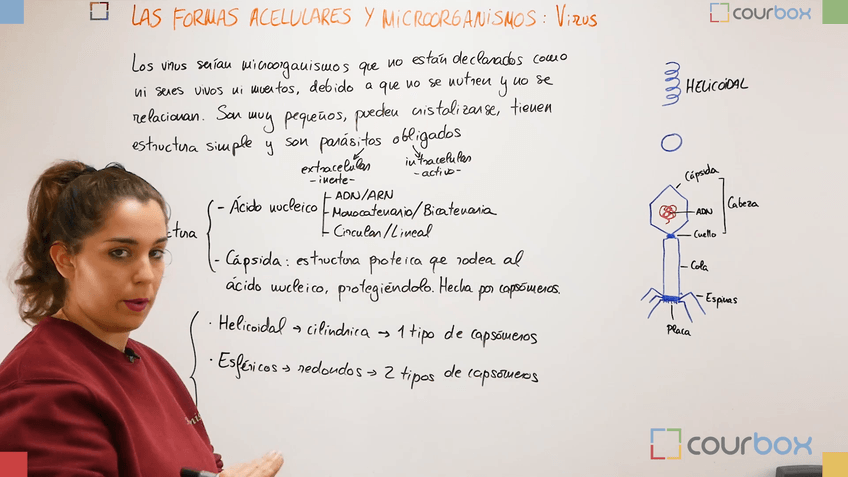 LAS FORMAS ACELULARES Y MICROORGANISMOS: VIRUS
courbox
Los virus serían microorganismos que no están declarados como
ni seres vivos ni muertos, debido a que no se nutren y no se
relacionan. Son muy pequeños, pueden cristalizarse, tienen
estructura simple y son parásitos obligados
extracelular
-inerte-
intracelular
-activo-
- Ácido nucleico
- ADN/ARN
- Monocatenario/Bicatenaria
- Circular/Lineal
- Cápsida: estructura proteica qe rodea al
ácido nucleico, protegiéndolo. Hecha por capsómeros.
· Helicoidal → cilíndrica → 1 tipo de capsómeros
· Esféricos → redondos → 2 tipos de capsómeros
HELICOIDAL
Cápsida
ADN
Cabeza
Cuello
Cola
Espinas
Placa
courbox